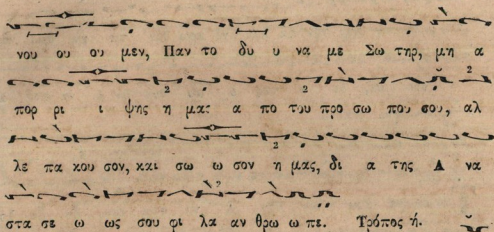 νου ου ου μεν, Παν το δυ υ να με Σω τηρ, μη α
πορ ρι ι ψης η μας α πο του προ σω που σου, αλ
λε πα κου σον, και σω ω σον η μας, δι α της Α να
στα σε ω ως σου φι λα αν θρω ω πε. Τρόπος ή.